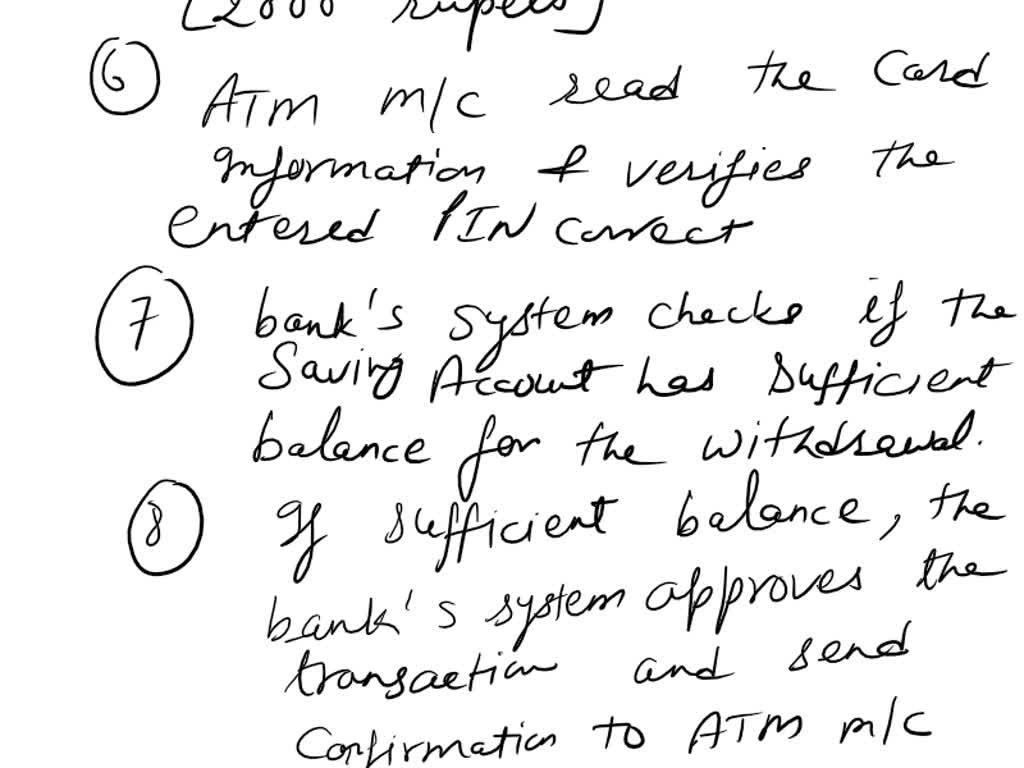 [2000 rupees]
6 ATM m/c read the Card
Information & verifies the
entered PIN correct
7 bank's system checks if the
Saving Account has sufficient
balance for the withdrawal.
8 If sufficient balance, the
bank's system approves the
transaction and send
Confirmation to ATM m/c